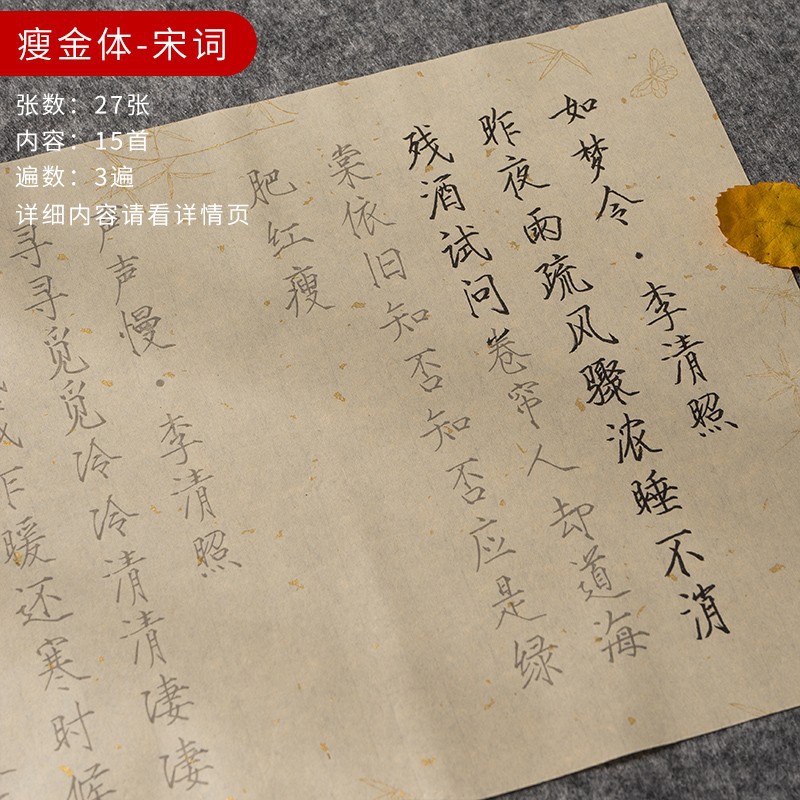 瘦金体-宋词
张数：27张
内容：15首
遍数：3遍
详细内容请看详情页
如梦令·李清照
昨夜雨疏风骤浓睡不消
残酒试问卷帘人却道海
棠依旧知否知否应是绿
肥红瘦
声声慢·李清照
寻寻觅觅冷冷清清凄凄
乍暖还寒时候